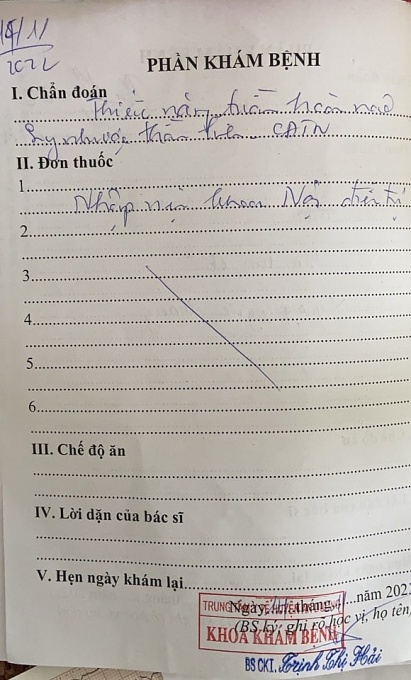 14/11
2022
PHẦN KHÁM BỆNH
I. Chẩn đoán
Thiểu năng tuần hoàn não
Suy nhược thần kinh CATN
II. Đơn thuốc
1.
Nhập viện khoa Nội điều trị
2.
3.
4.
5.
6.
III. Chế độ ăn
IV. Lời dặn của bác sĩ
V. Hẹn ngày khám lại
Ngày, tháng năm 202
(BS ký, ghi rõ học vị, họ tên
KHOA KHÁM BỆNH
BS CKI. Trịnh Thị Hải